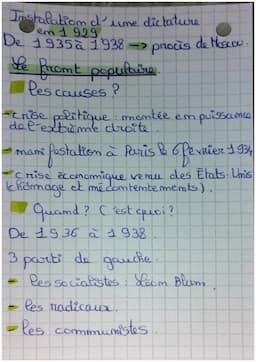 Instalation d'une dictature
en 1929
De 1935 à 1938 → procès de Moscou.
Le front populaire.
Les causes ?
- crise politique : montée en puissance
de l'extrême droite.
- manifestation à Paris le 6 février 1934
- crise économique venu des Etats-Unis
(chômage et mécontentements).
Quand ? C'est quoi ?
De 1936 à 1938.
3 parti de gauche.
- les socialistes : Léon Blum.
- les radicaux.
- les communistes.